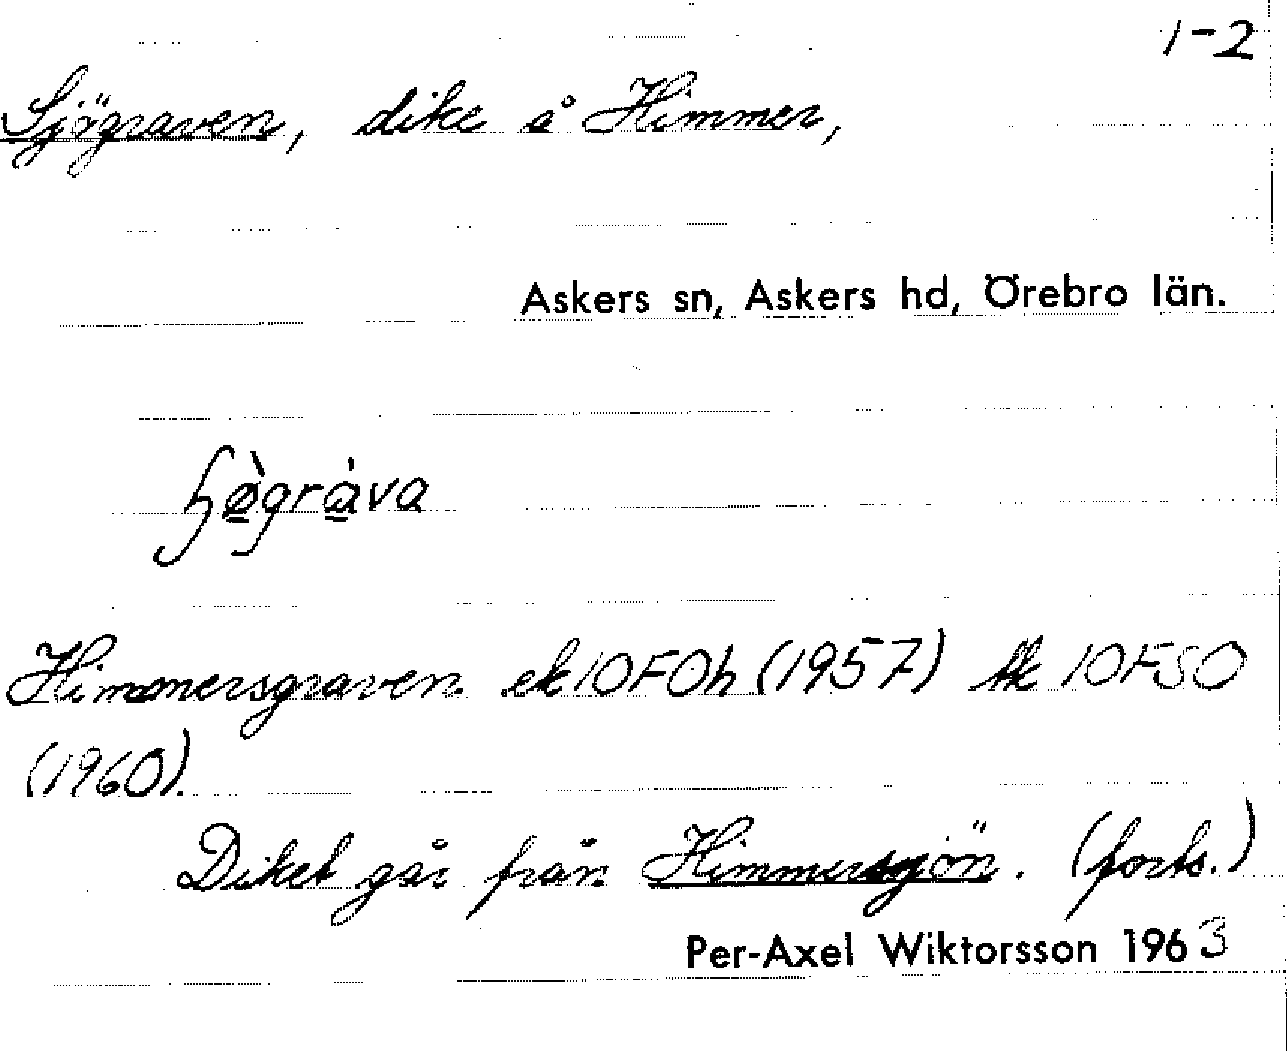 1-2
Sjögraven, dike å Himmer,
Askers sn, Askers hd, Örebro län.
Himmersgraven ek 10F0h (1957) tk 10F SO
(1960).
Diket går från Himmersjön. (forts.)
Per-Axel Wiktorsson 1963